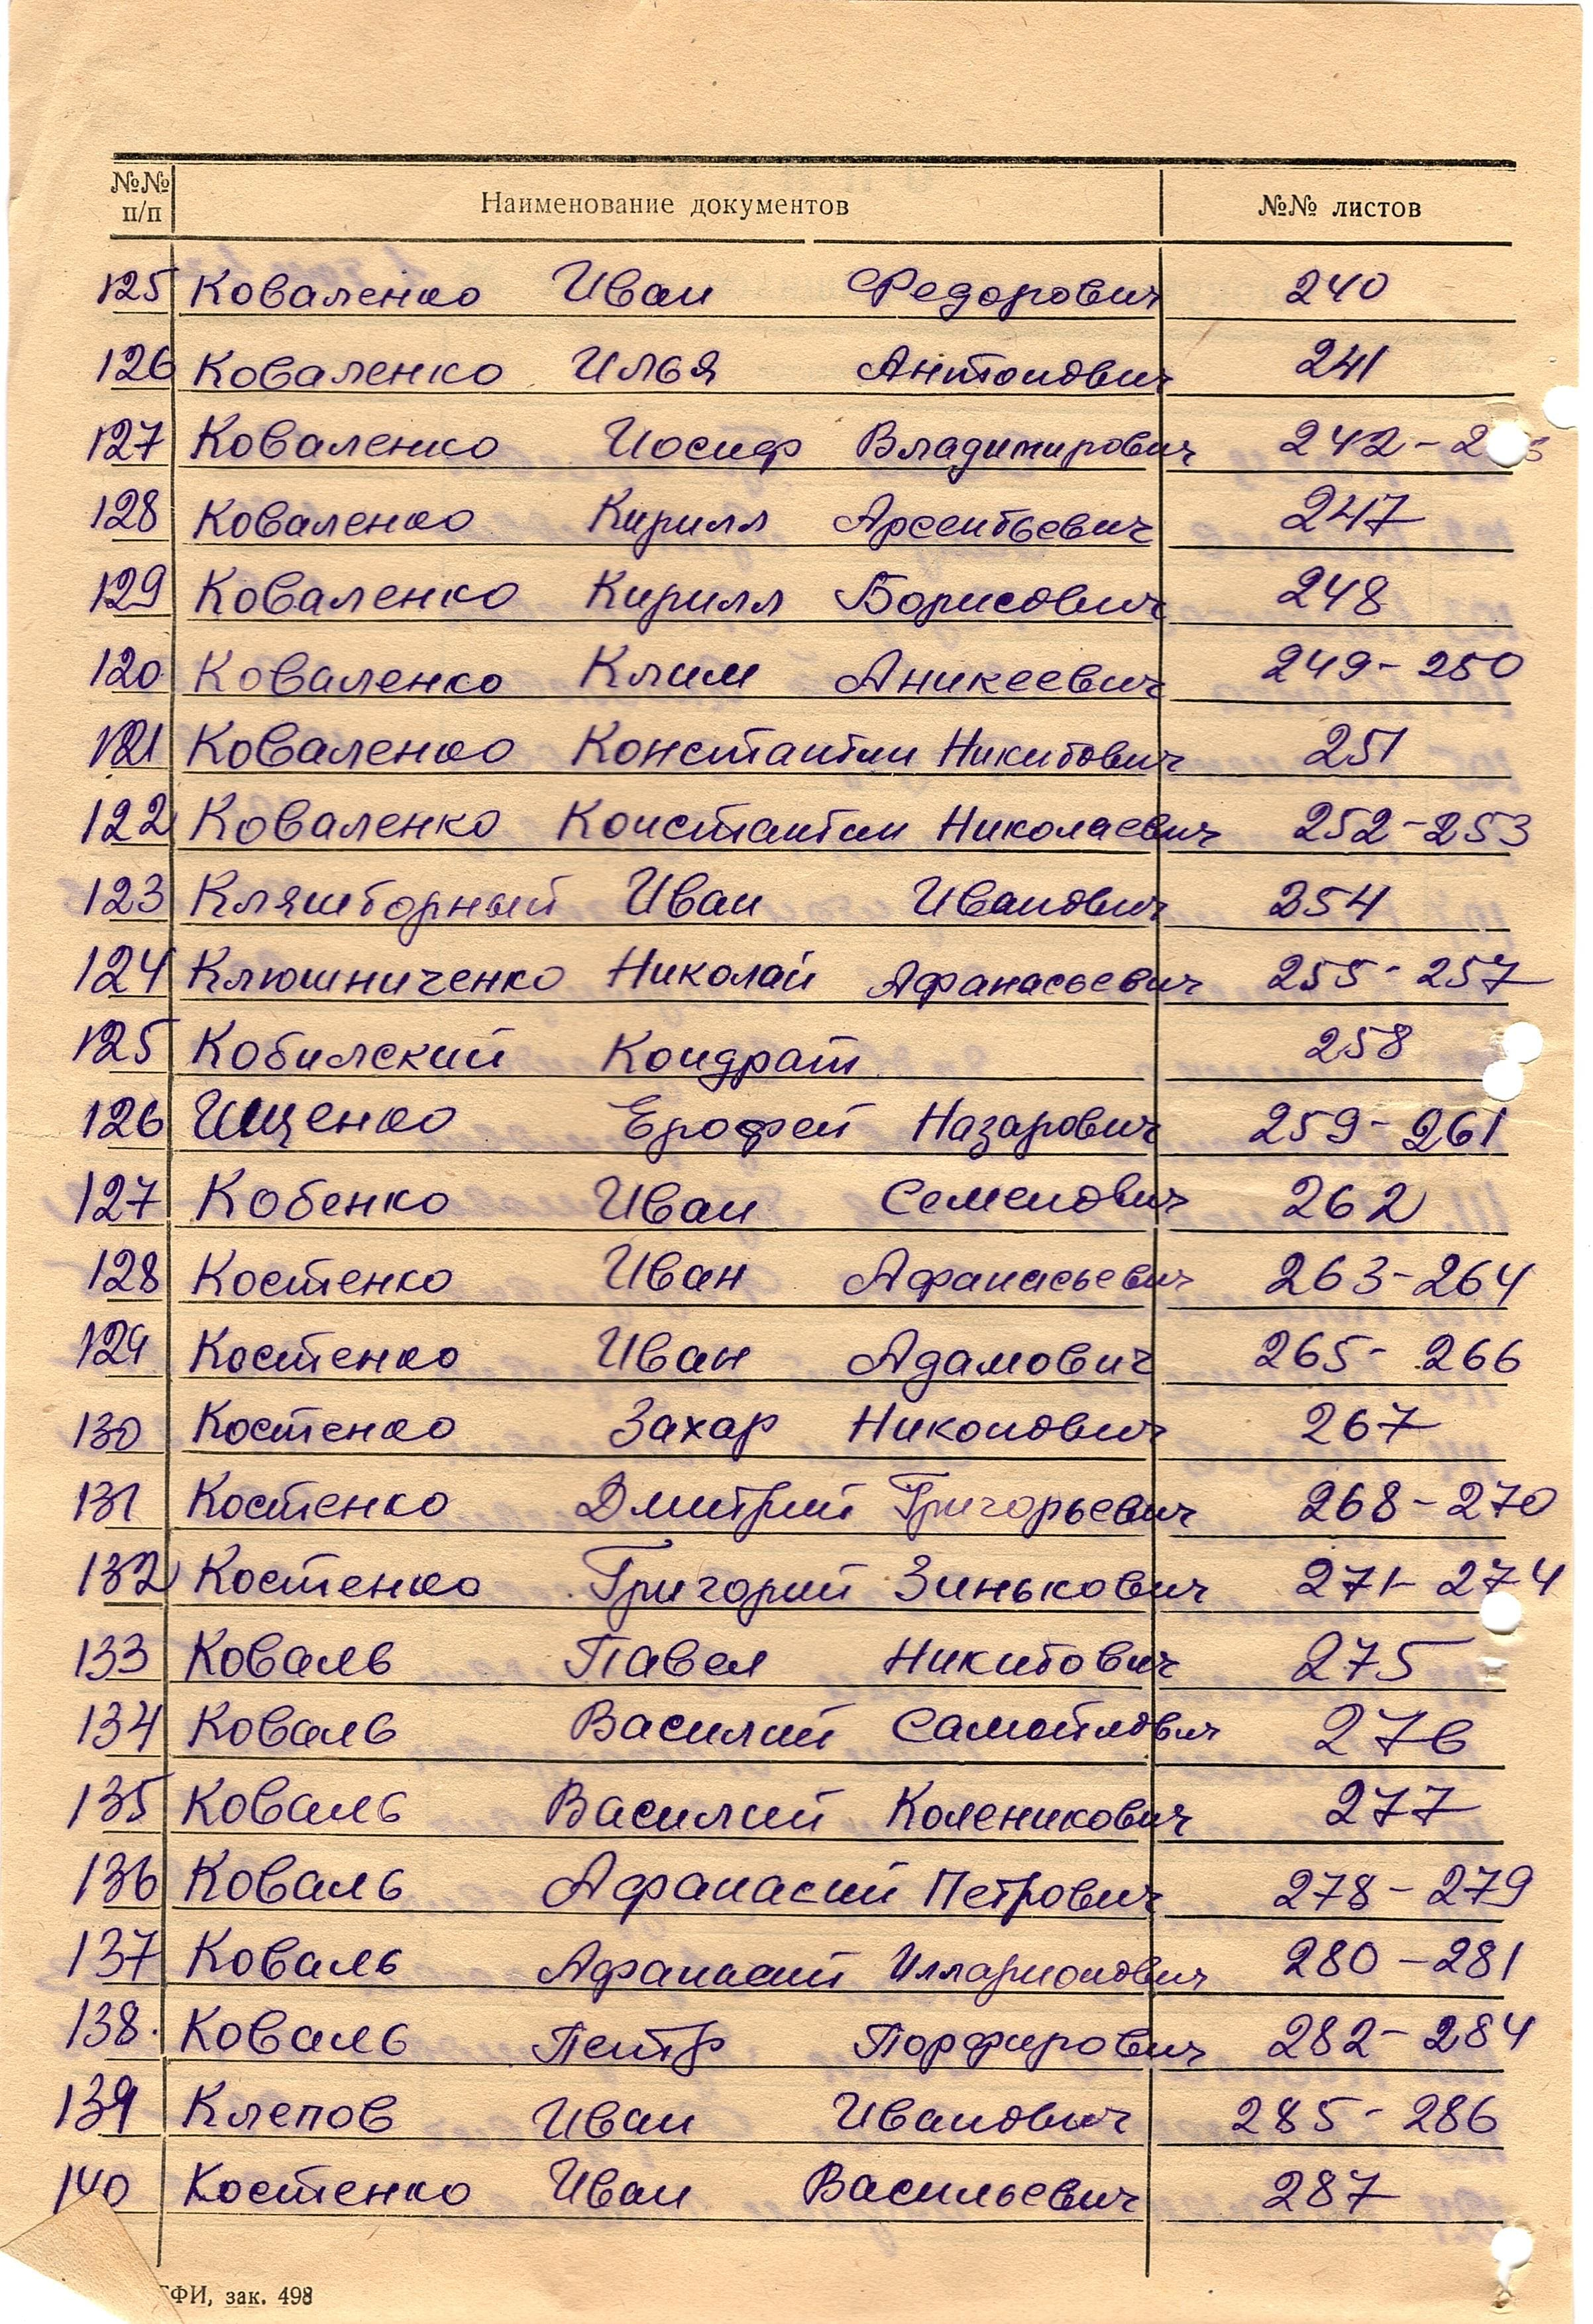 №№ п/п Наименование документов №№ листов
125 Коваленко Иван Федорович 240
126 Коваленко Илья Антонович 241
127 Коваленко Иосиф Владимирович 242-
128 Коваленко Кирилл Арсентьевич 247
129 Коваленко Кирилл Борисович 248
120 Коваленко Клим Аникеевич 249-250
121 Коваленко Константин Никитович 251
122 Коваленко Константин Николаевич 252-253
123 Кляшторный Иван Иванович 254
124 Клюшниченко Николай Афанасьевич 255-257
125 Кобилский Кондрат 258
126 Ищенко Ерофей Назарович 259-261
127 Кобенко Иван Семенович 262
128 Костенко Иван Афанасьевич 263-264
129 Костенко Иван Адамович 265-266
130 Костенко Захар Никонович 267
131 Костенко Дмитрий Григорьевич 268-270
132 Костенко Григорий Зинькович 271-274
133 Коваль Павел Никитович 275
134 Коваль Василий Самойлович 276
135 Коваль Василий Коленикович 277
136 Коваль Афанасий Петрович 278-279
137 Коваль Афанасий Илларионович 280-281
138. Коваль Петр Порфирович 282-284
139 Клепов Иван Иванович 285-286
140 Костенко Иван Васильевич 287
ТФИ, зак. 498